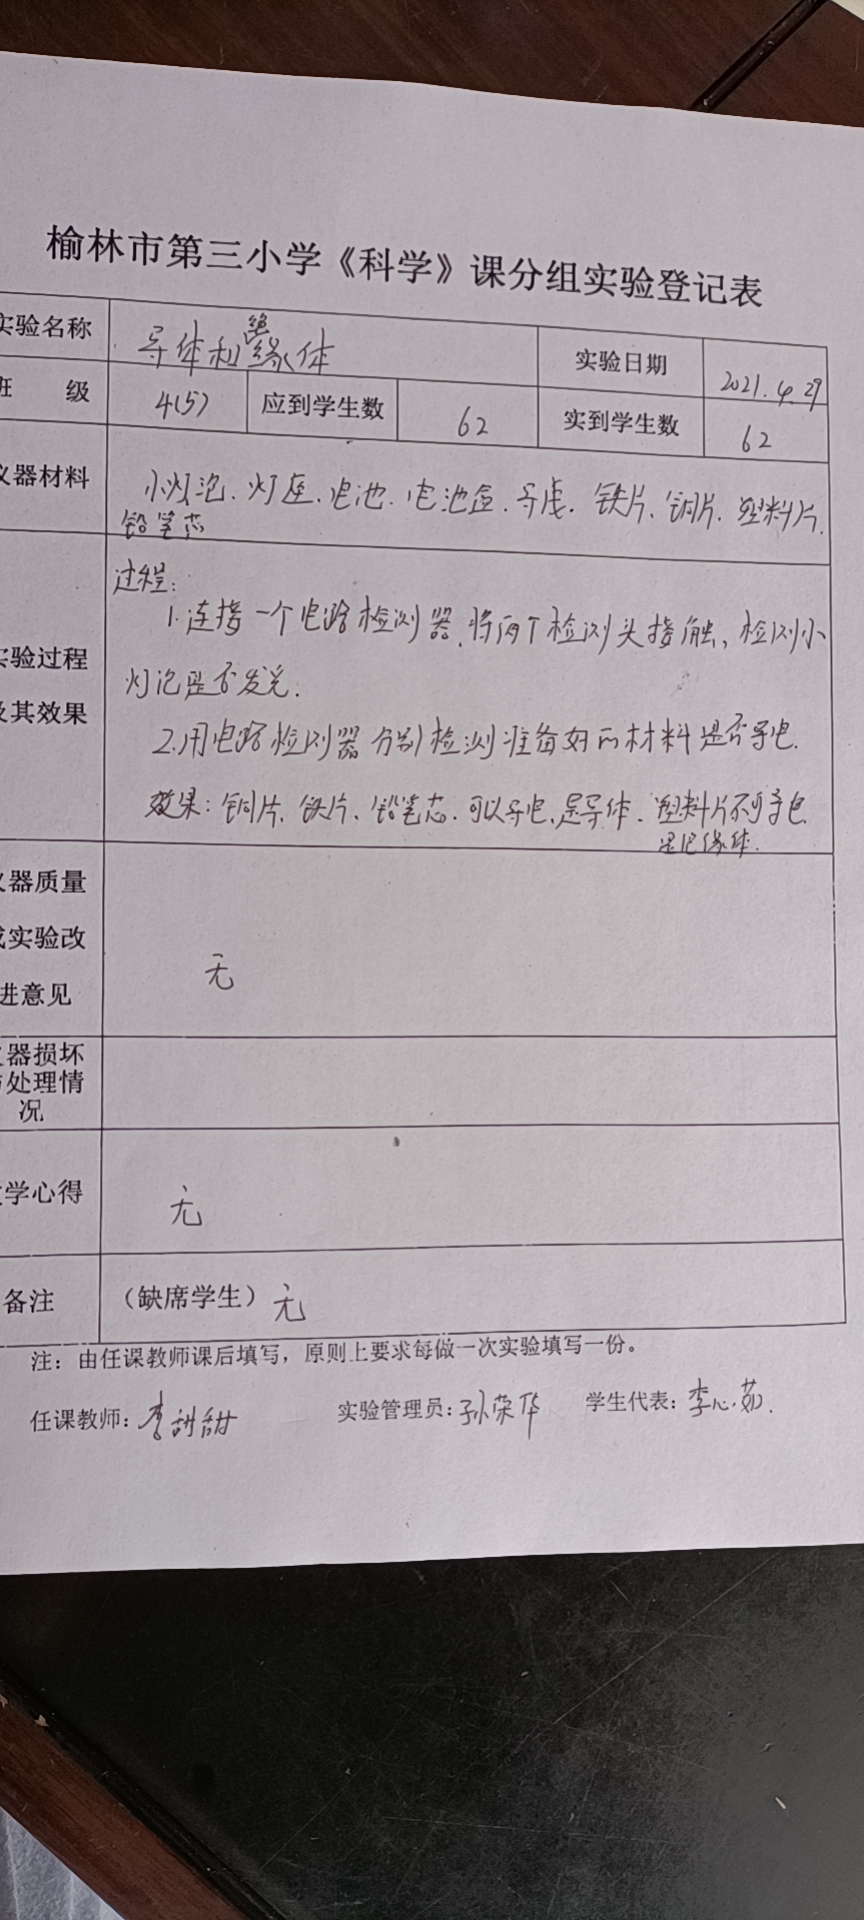 榆林市第三小学《科学》课分组实验登记表
实验名称 导体和绝缘体 实验日期 2021.4.29
班 级 4(5) 应到学生数 62 实到学生数 62
仪器材料 小灯泡、灯座、电池、电池盒、导线、铁片、铜片、塑料片、
铅笔芯
过程：
1.连接一个电路检测器、将两个检测头接触、检测小
实验过程
灯泡是否发光.
及其效果
2.用电路检测器分别检测准备好的材料是否导电.
效果：铜片、铁片、铅笔芯.可以导电、是导体.塑料片不可导电
是绝缘体.
仪器质量
或实验改
进意见
无
仪器损坏
与处理情
况
教学心得 无
备注 （缺席学生）无
注：由任课教师课后填写，原则上要求每做一次实验填写一份。
任课教师：李甜甜 实验管理员：孙荣华 学生代表：李心茹.